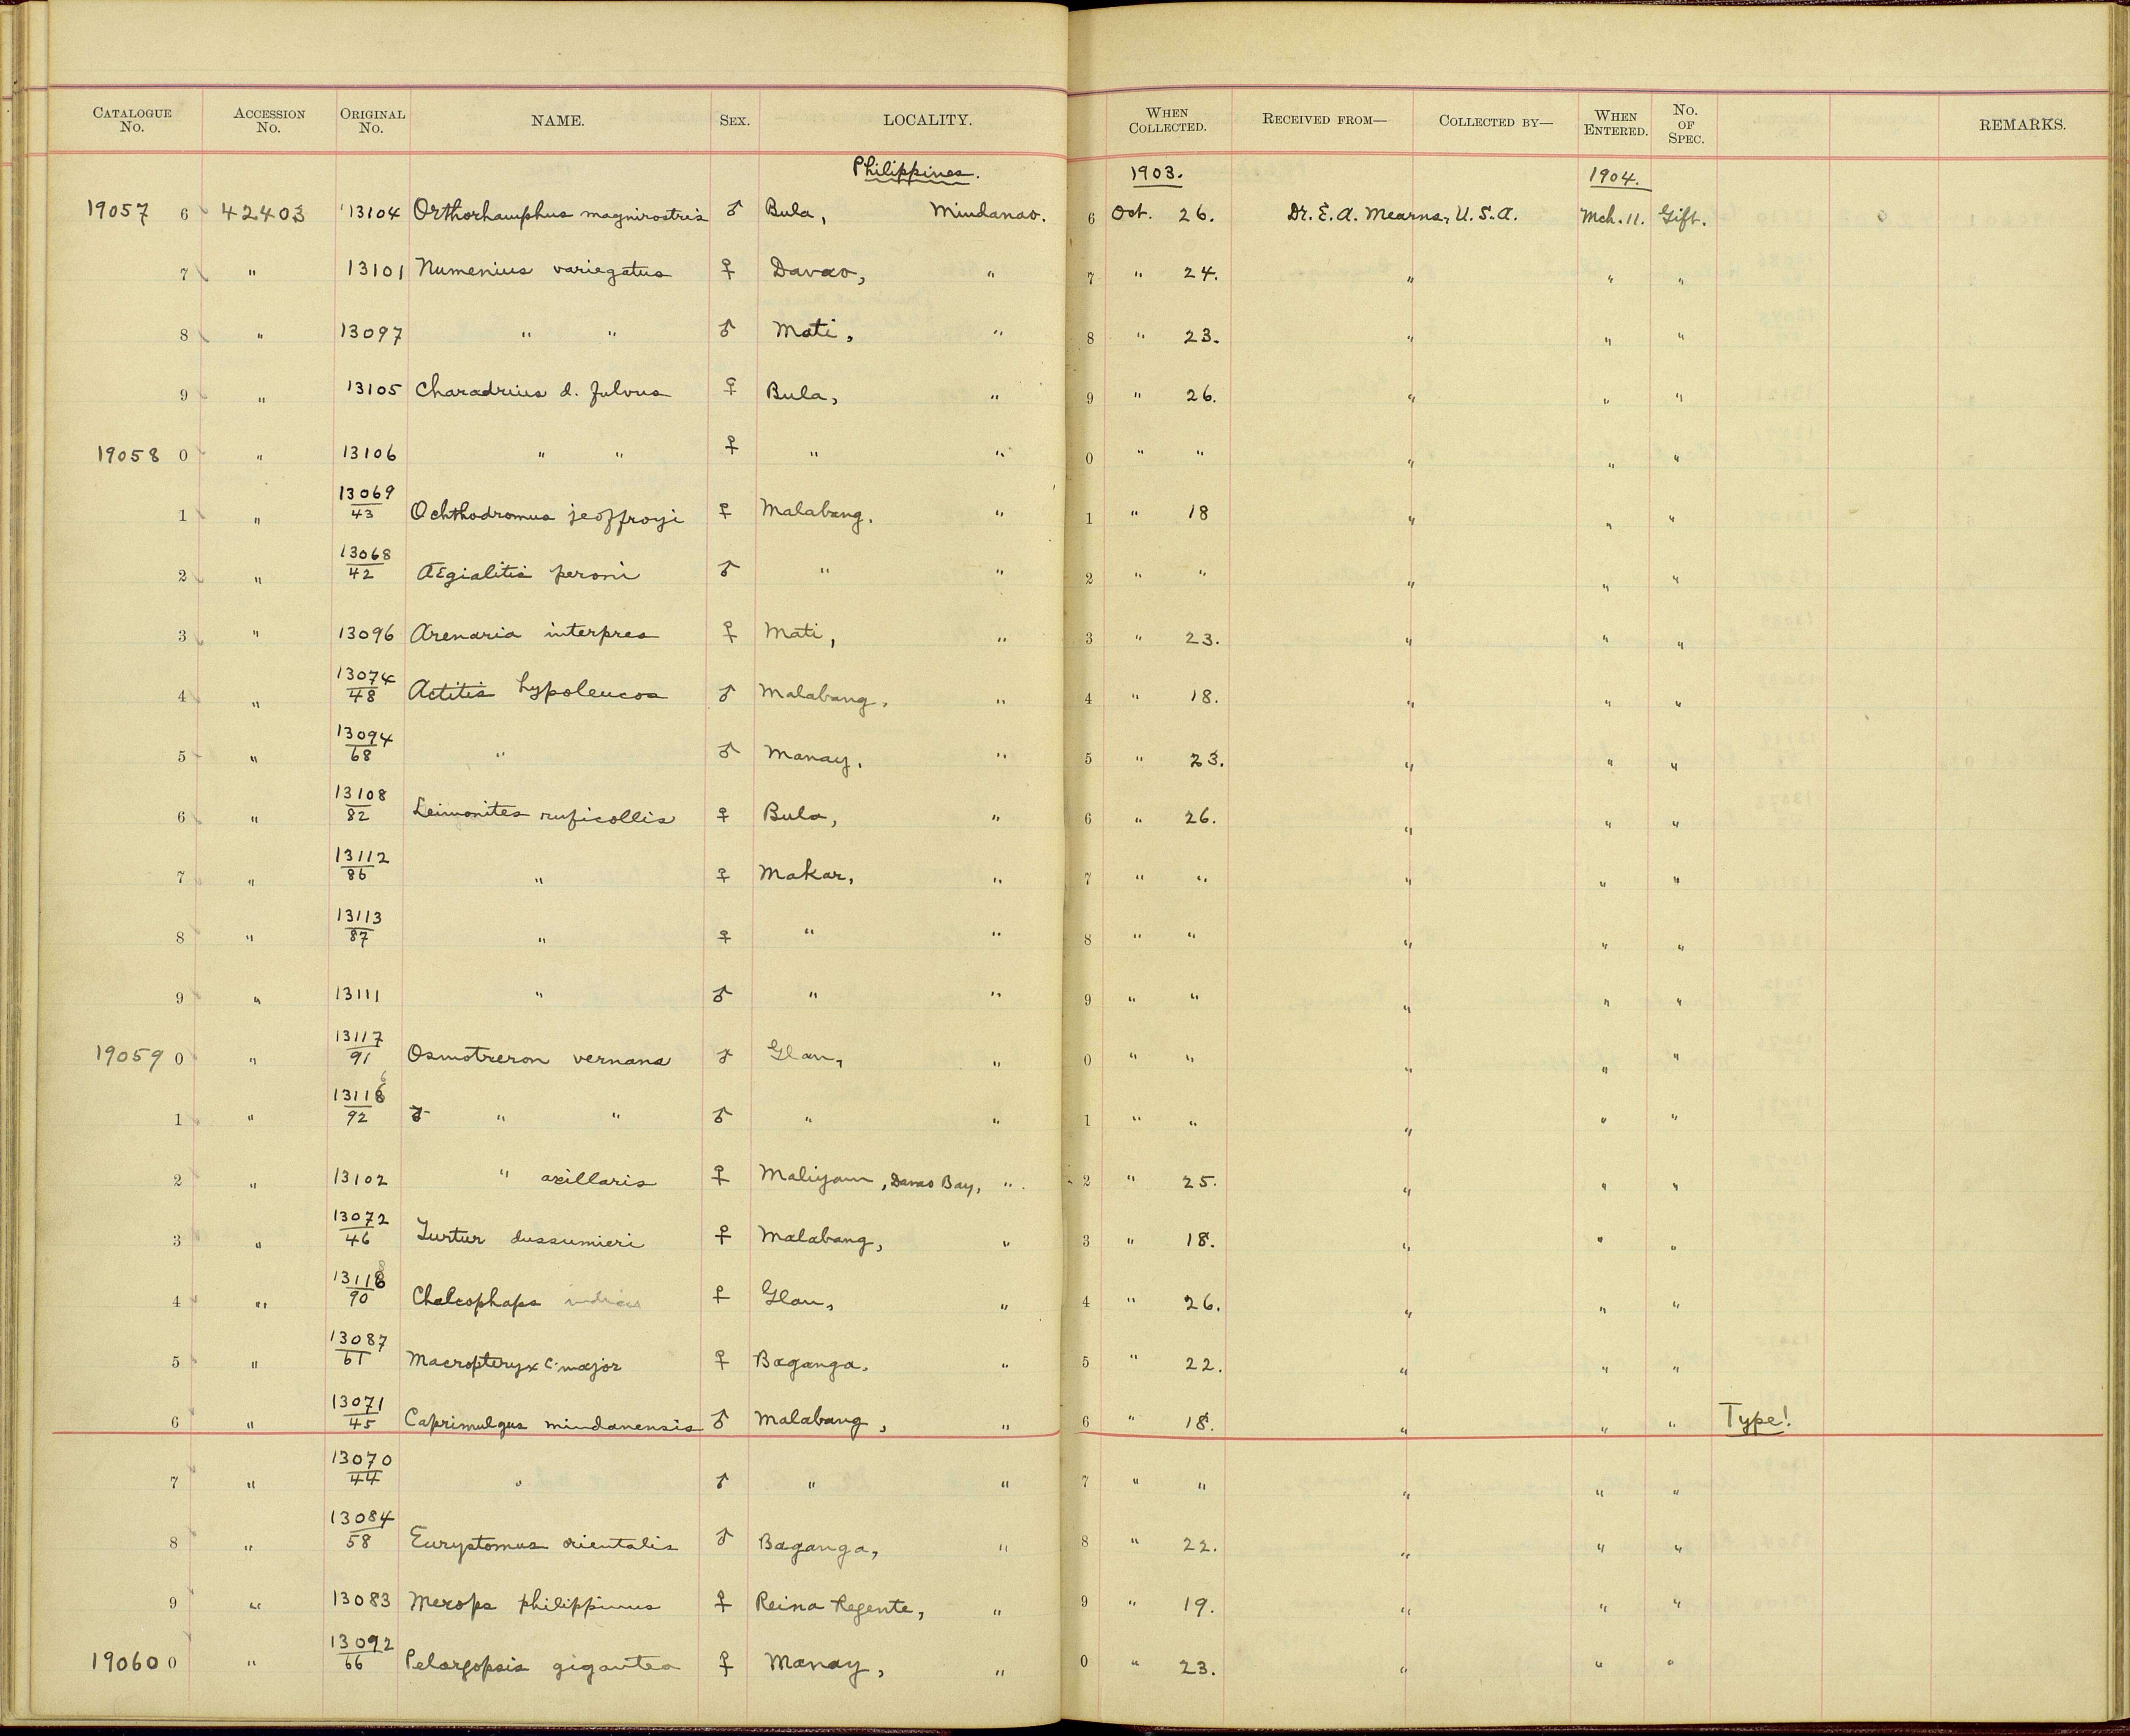 CATALOGUE No. ACCESSION No. ORIGINAL No. NAME. SEX. LOCALITY. WHEN COLLECTED. RECEIVED FROM— COLLECTED BY— WHEN ENTERED. No. OF SPEC. REMARKS.
Philippines. 1903. 1904.
19057 6 42403 13104 Orthorhamphus magnirostris ♂ Bula, Mindanao. 6 Oct. 26. Dr. E. A. Mearns, U. S. A. Mch. 11. Gift.
7 " 13101 Numenius variegatus ♀ Davao, " 7 " 24. " " "
8 " 13097 " " ♂ Mati, " 8 " 23. " " "
9 " 13105 Charadrius d. fulvus ♀ Bula, " 9 " 26. " " "
19058 0 " 13106 " " ♀ " " 0 " " " " "
1 " 13069/43 Ochthodromus jeoffroyi ♀ Malabang, " 1 " 18 " " "
2 " 13068/42 Ægialitis peroni ♂ " " 2 " " " " "
3 " 13096 Arenaria interpres ♀ Mati, " 3 " 23. " " "
4 " 13074/48 Actitis hypoleucos ♂ Malabang, " 4 " 18. " " "
5 " 13094/68 " ♂ Manay, " 5 " 23. " " "
6 " 13108/82 Leimonites ruficollis ♀ Bula, " 6 " 26. " " "
7 " 13112/86 " ♀ Makar, " 7 " " " " "
8 " 13113/87 " ♀ " " 8 " " " " "
9 " 13111 " ♂ " " 9 " " " " "
19059 0 " 13117/91 Osmotreron vernans ♂ Glan, " 0 " " " " "
1 " 13118/92 ♂ " " ♂ " " 1 " " " " "
2 " 13102 " axillaris ♀ Maliyam, Davao Bay, " 2 " 25. " " "
3 " 13072/46 Turtur dussumieri ♀ Malabang, " 3 " 18. " " "
4 " 13118/90 Chalcophaps indica ♀ Glan, " 4 " 26. " " "
5 " 13087/61 Macropteryx c. major ♀ Baganga, " 5 " 22. " " "
6 " 13071/45 Caprimulgus mindanensis ♂ Malabang, " 6 " 18. " " " Type!
7 " 13070/44 " ♂ " " 7 " " " " "
8 " 13084/58 Eurystomus orientalis ♂ Baganga, " 8 " 22. " " "
9 " 13083 Merops philippinus ♀ Reina Regente, " 9 " 19. " " "
19060 0 " 13092/66 Pelargopsis gigantea ♀ Manay, " 0 " 23. " " "